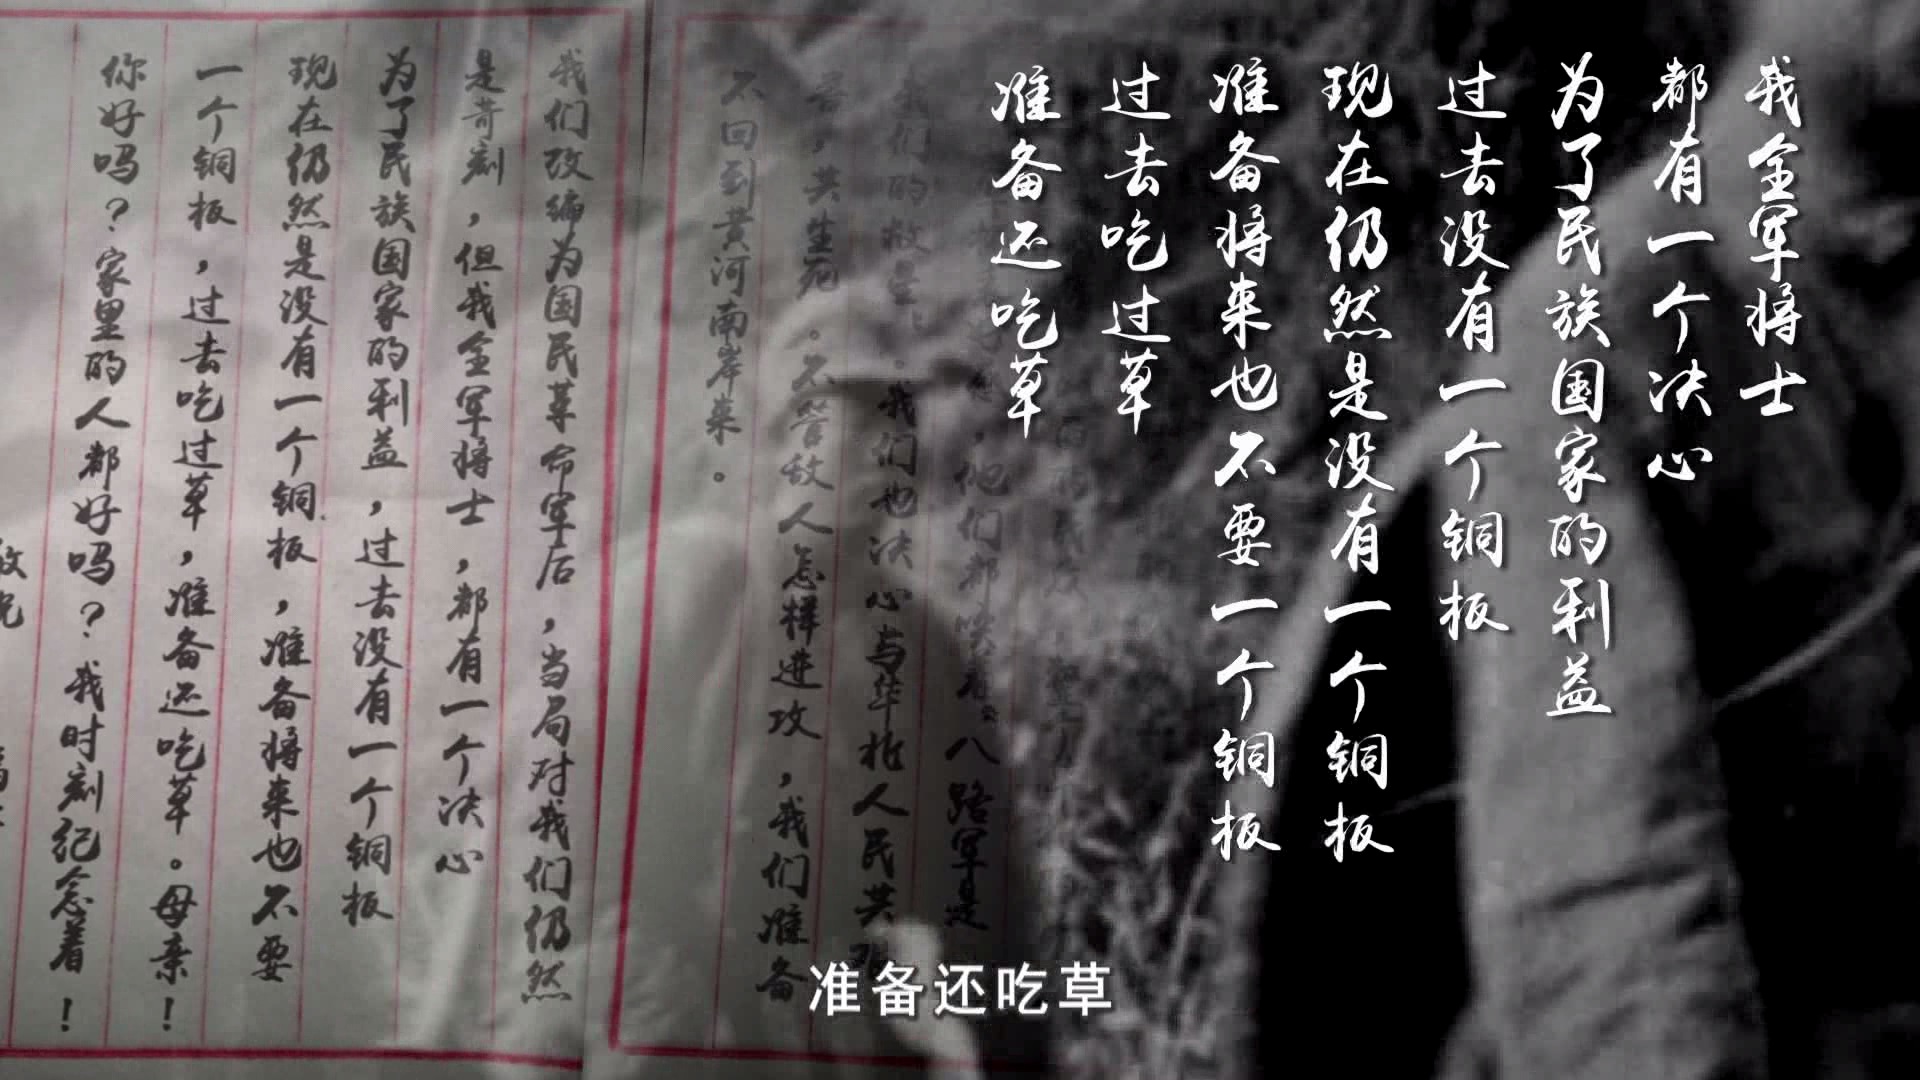 我全军将士
都有一个决心
为了民族国家的利益
过去没有一个铜板
现在仍然是没有一个铜板
准备将来也不要一个铜板
过去吃过草
准备还吃草
他们都 八路军是
我们的救星。我们也决心与华北人民共艰
苦，共生死。不管敌人怎样进攻，我们准备
不回到黄河南岸来。
我们改编为国民革命军后，当局对我们仍然
是苛刻，但我全军将士，都有一个决心
为了民族国家的利益，过去没有一个铜板
现在仍然是没有一个铜板，准备将来也不要
一个铜板，过去吃过草，准备还吃草。母亲！
你好吗？家里的人都好吗？我时刻纪念着！
准备还吃草